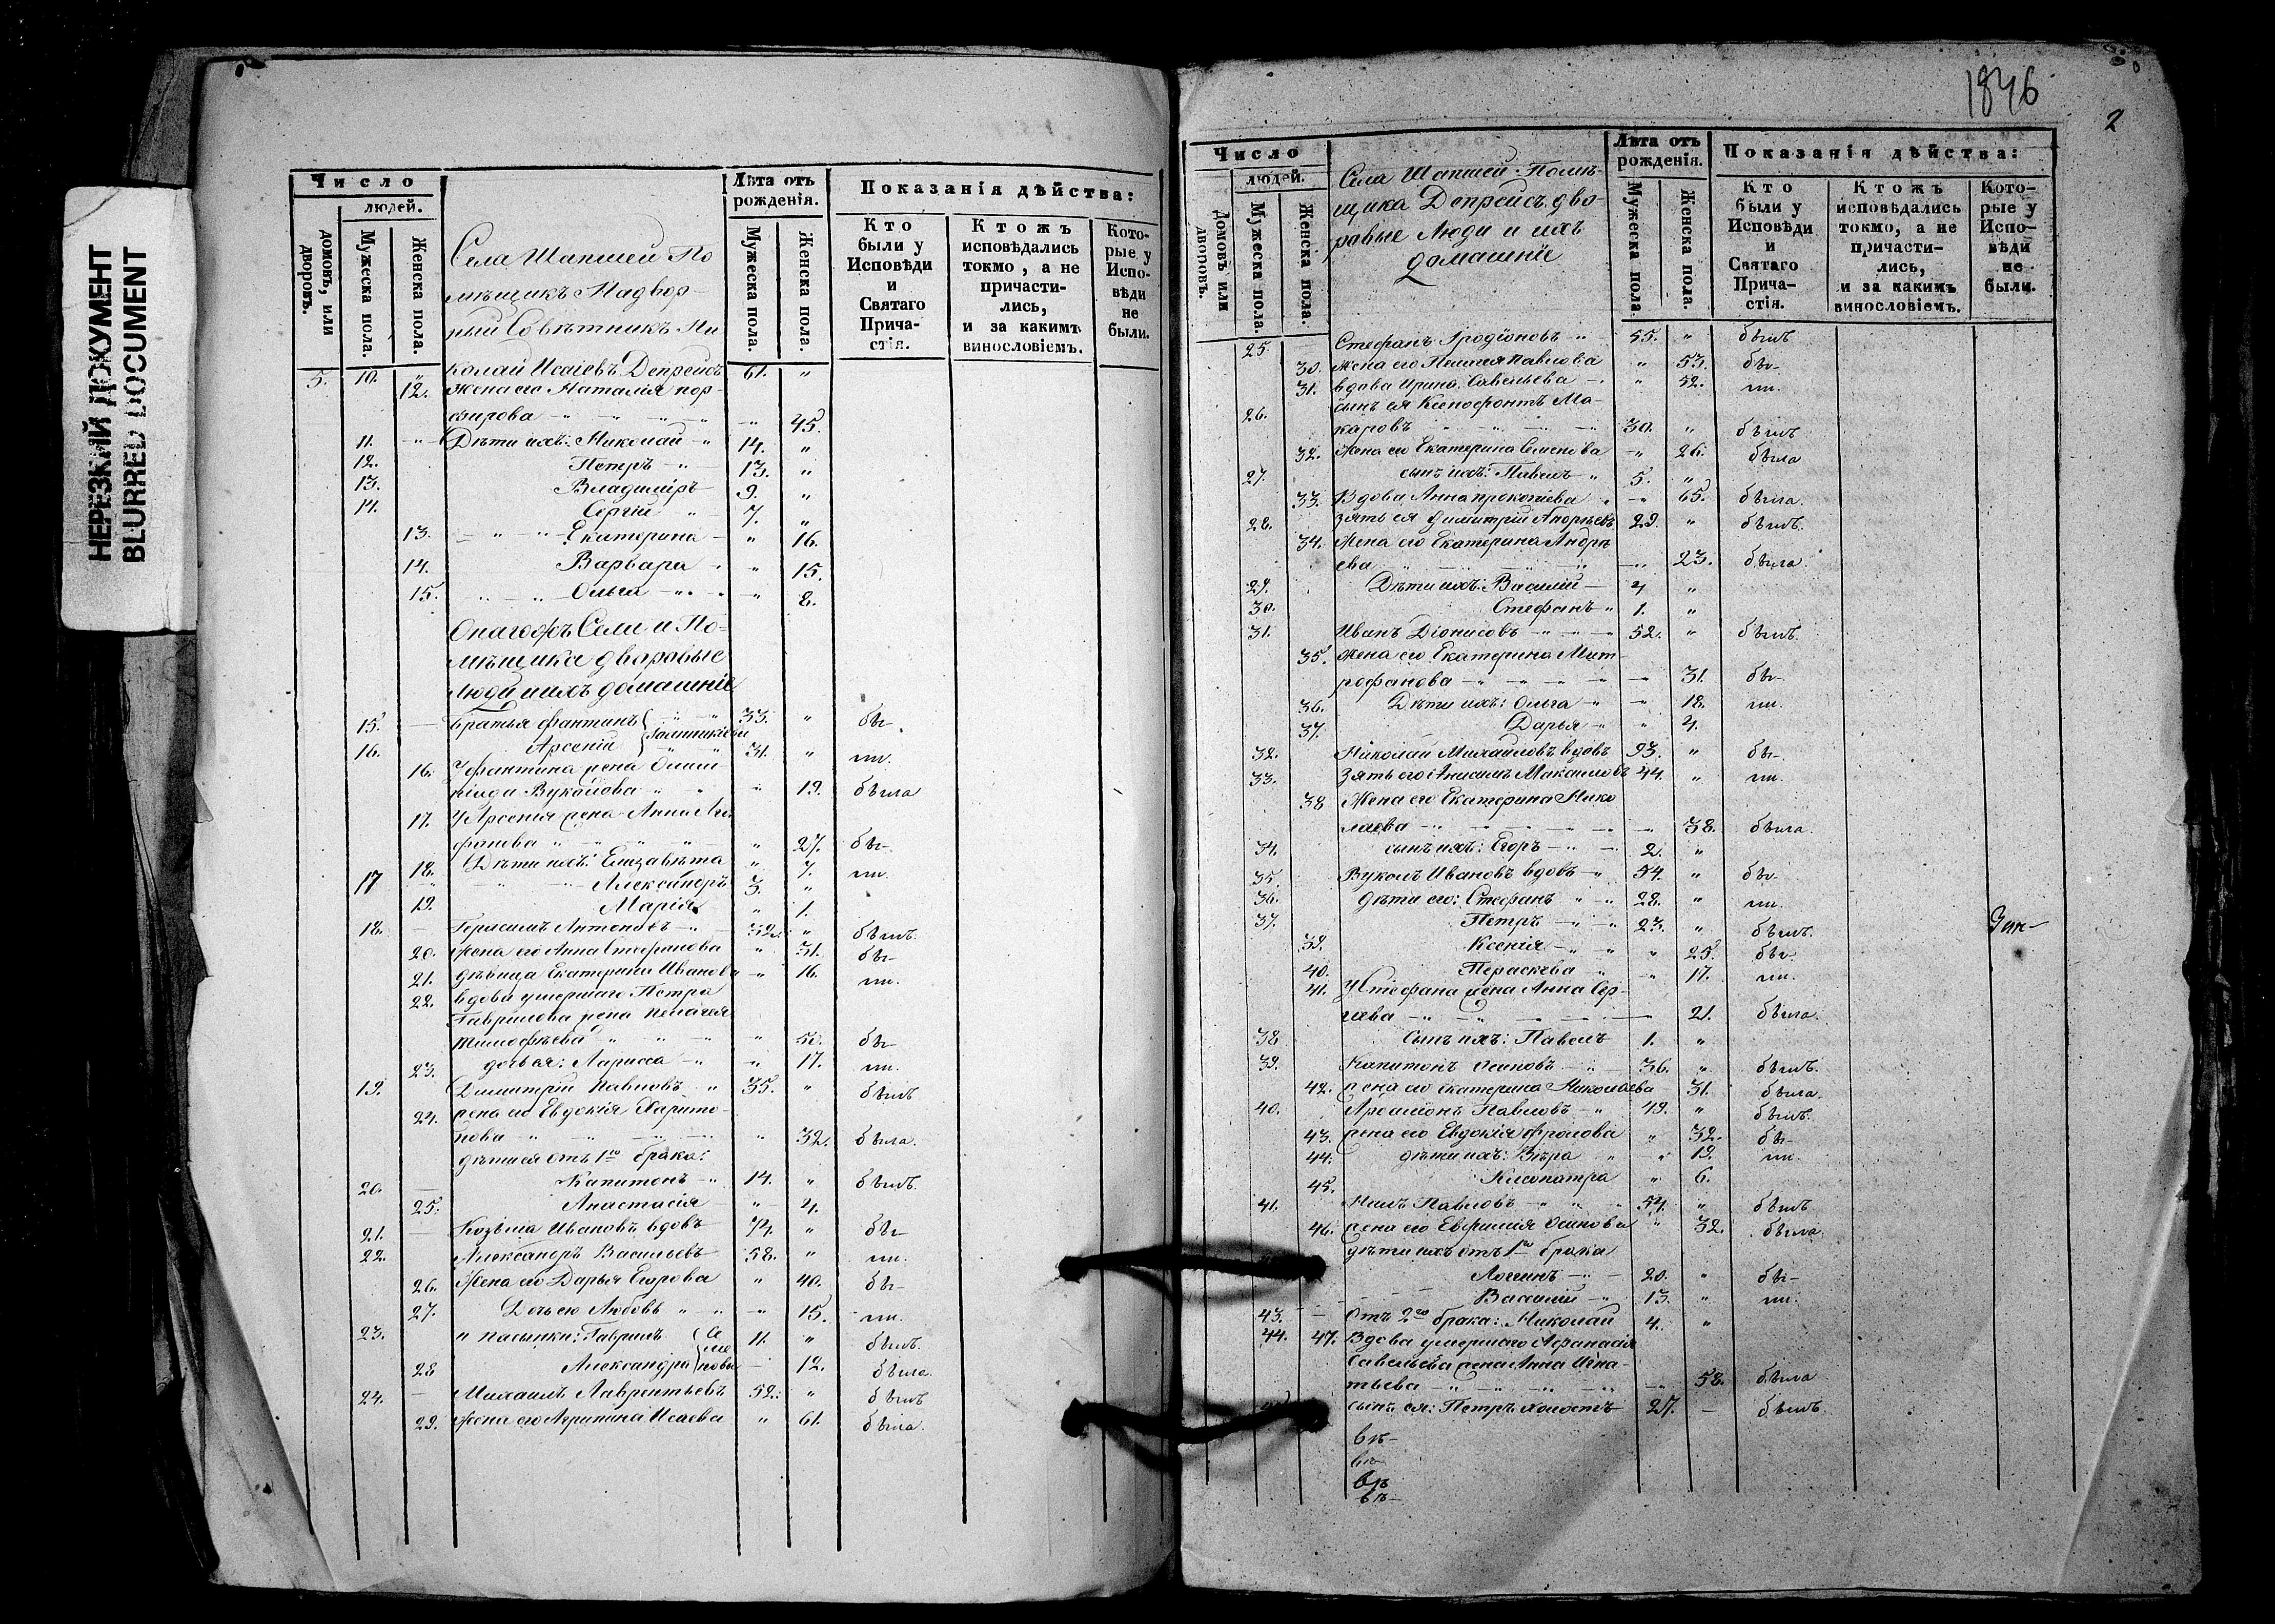 НЕРЕЗКИЙ ДОКУМЕНТ
BLURRED DOCUMENT
Число
людей.
домовъ, или дворовъ.
Мужеска пола.
Женска пола.
Лѣта отъ рожденія.
Мужеска пола.
Женска пола.
Показанія дѣйства:
Кто были у Исповѣди и Святаго Прича-стія.
Ктожъ исповѣдались токмо, а не причасти-лись, и за какимъ винословіемъ.
Кото-рые у Испо-вѣди не были.
Села Шапшей По
мѣщикъ Надвор-
ный Совѣтникъ Ни
5. 10. " колай Исаіевъ Депрейсъ 61. "
12. жена его Наталія пор-
фирова - " - " 45.
11. Дѣти ихъ: Николай 14. "
12. Петръ 13. "
13. Владиміръ 9. "
14. Сергій 7. "
13. Екатерина " 16.
14. Варвара " 15.
15. Ольга " 8.
Онагожъ Села и По-
мѣщика дворовые
люди и ихъ домашніе
15. Братья фантинъ 33. " бы-
16. Арсеній 31. " ли.
16. У фантина жена Олим
піада Вуколова " 19. была
17. У Арсенія жена Анна Ага
фонова " 27. бы-
18. Дѣти ихъ: Елизавета " 7. ли.
17 Александръ 3. "
19. Марія " 1.
18. Герасимъ Антоновъ 32. " былъ.
20. жена его Анна Стефанова " 31. бы-
21. дѣвица Екатерина Иванова " 16. ли.
22. вдова умершаго Петра
Гаврилова жена Пелагея
Тимофѣева " 50. бы-
23. дочь ея: Лариса " 17. ли.
19. Димитрій Павловъ 35. " былъ
24. жена его Евдокія Харито-
нова " 32. была.
дѣти ея отъ 1го брака:
20. Капитонъ 14. " былъ.
25. Анастасія " 4.
21. Козьма Ивановъ вдовъ 74. " бы-
22. Александръ Васильевъ 58. " ли.
26. Жена его Дарья Егорова " 40. бы-
27. Дочь его Любовь " 15. ли.
23. и пасынки: Гаврилъ 11. " былъ.
28 Александра 12. была.
24. Михаилъ Лаврентьевъ 52. " былъ
29. Жена его Агрипина Исаева " 61. была.
1846
2
Число
людей.
Домовъ или дворовъ.
Мужеска пола.
Женска пола.
Лѣта отъ рожденія.
Мужеска пола
Женска пола.
Показанія дѣйства:
Кто были у Исповѣди и Святаго Прича-стія.
Ктожъ исповѣдались токмо, а не причасти-лись, и за какимъ винословіемъ.
Кото-рые у Испо-вѣди не были.
Села Шапшей Помѣ-
щика Депрейсъ дво-
ровые Люди и ихъ
домашніе
25. Стефанъ Іродіоновъ 55. " былъ
30. Жена его Пелагея Павлова " 53. бы-
31. вдова Ирина Савельева " 52. ли.
26. сынъ ея Ксенофонтъ Ма-
каровъ 30. " былъ
32. Жена его Екатерина Семенова " 26. была
27. сынъ ихъ: Павелъ 5. "
33. Вдова Анна прокопіева " 65. была.
28. Зять ея Димитрій Андреевъ 29. " былъ.
34. Жена его Екатерина Андре
ева 23. была.
29. Дѣти ихъ: Василій 4 "
30. Стефанъ 1. "
31. Иванъ Діонисовъ 52. " былъ.
35. Жена его Екатерина Мит-
рофанова 31. бы-
36. Дѣти ихъ: Ольга 18. ли.
37. Дарья " 4.
32. Николай Михайловъ вдовъ 93. " бы-
33. Зять его Анисимъ Максимовъ 44. " ли.
38 Жена его Екатерина Нико
лаева 38. была.
34. сынъ ихъ: Егоръ 2. "
35. Вуколъ Ивановъ вдовъ 54. " бы-
36. дѣти его: Стефанъ 28. " ли.
37. Петръ 23. " былъ.
39. Ксенія " 25. бы-
40. Параскева " 17. ли.
41. У Стефана жена Анна Сер-
гіева 21. была.
38 Сынъ ихъ: Павелъ 1. "
39. Капитонъ Осиповъ 36. " былъ.
42. жена его Екатерина Николаева 31. была.
40. Иродіонъ Павловъ 49. " былъ.
43. жена его Евдокія Фролова " 32. бы-
44. дѣти ихъ: Вѣра " 19. ли.
45. Клеопатра " 6.
41. Нилъ Павловъ 54. " былъ
46. жена его Евфимия Осипова " 32. была.
дѣти ихъ отъ 1го брака
Логинъ 20. " бы-
Василій 13. " ли.
43. Отъ 2го брака: Николай 4. "
44. 47. Вдова умершаго Афанасія
Савельева жена Анна Игна-
тьева 58. была
сынъ ея: Петръ холостъ 27. - былъ.